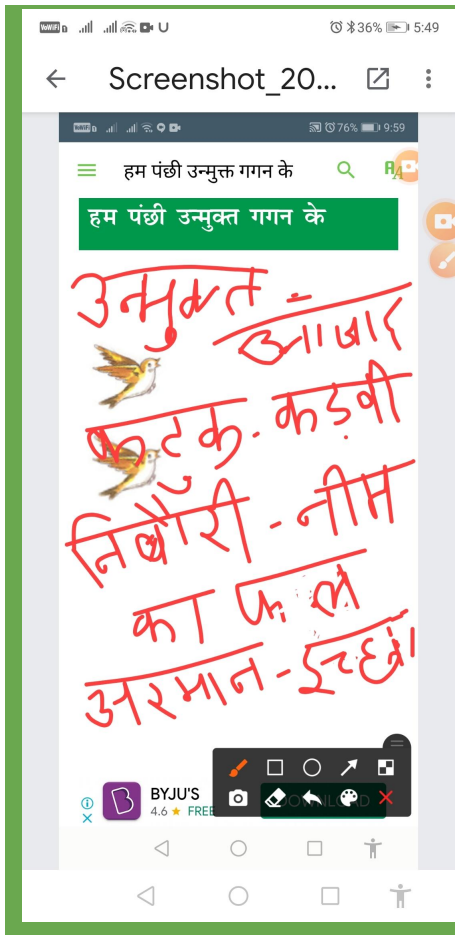 VoWiFi 36% 5:49
Screenshot_20...
VoWiFi 76% 9:59
हम पंछी उन्मुक्त गगन के
हम पंछी उन्मुक्त गगन के
उन्मुक्त -
आजाद
कटुक - कड़वी
निबौरी - नीम
का फल
अरमान - इच्छा
BYJU'S
4.6 ★ FREE
DOWNLOAD